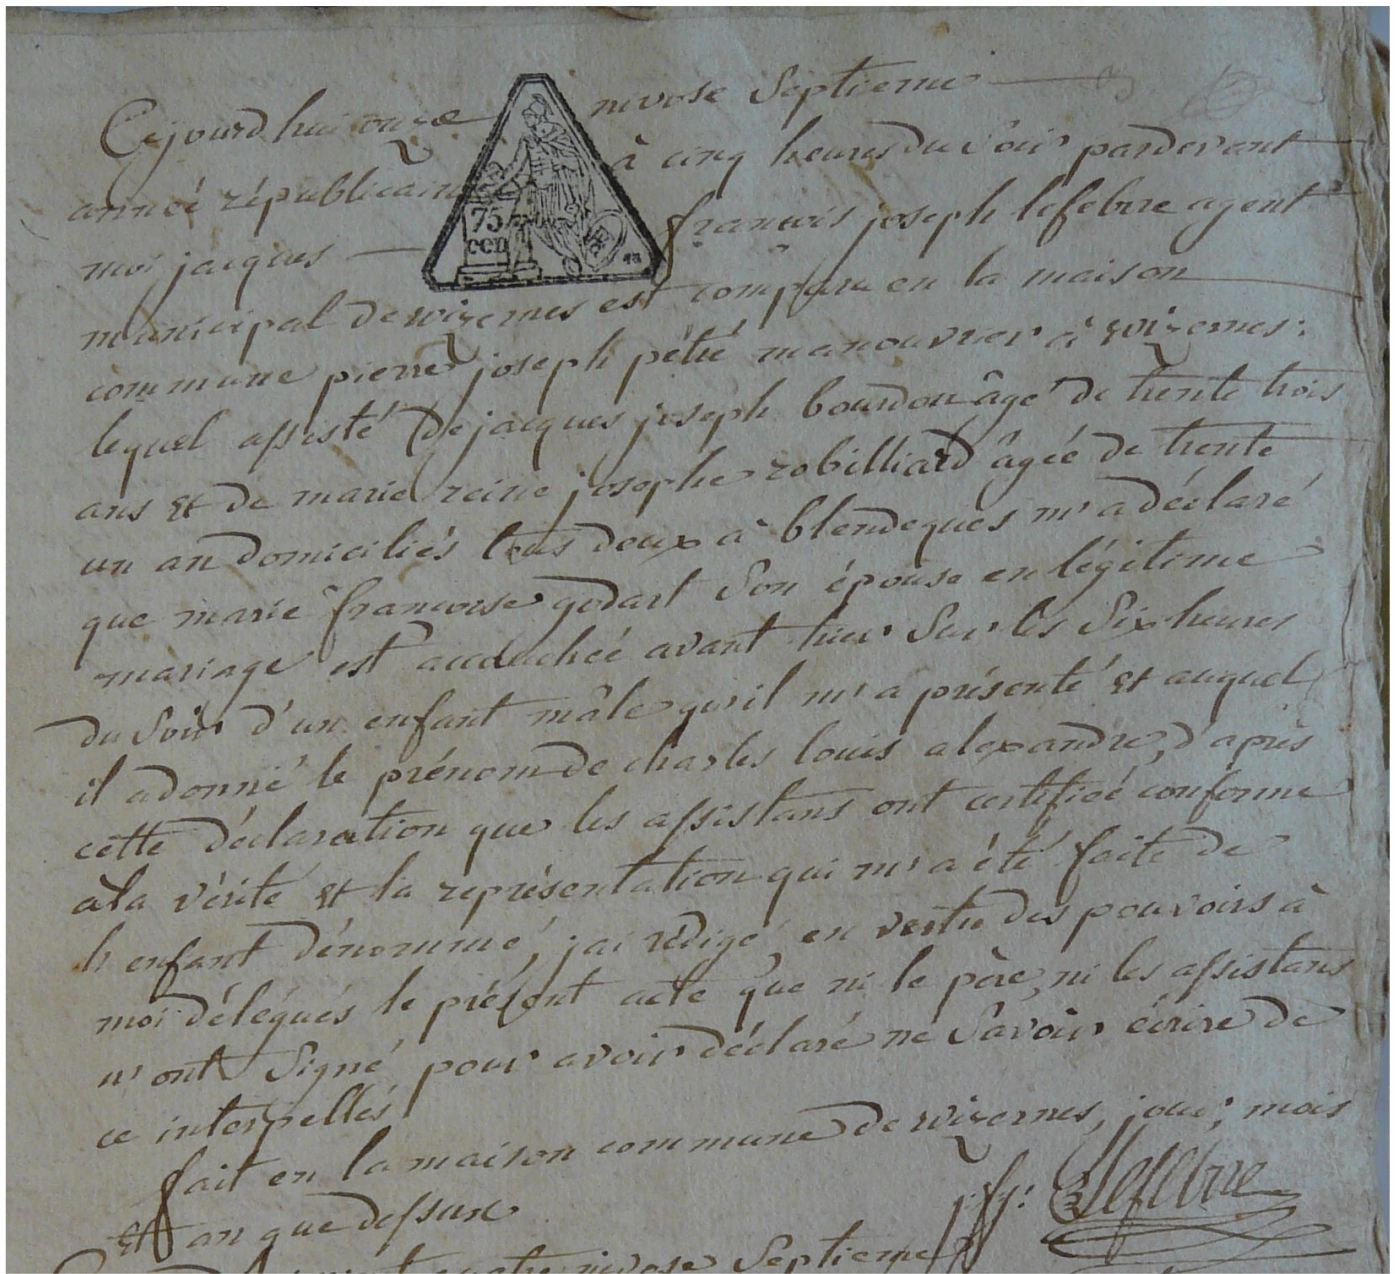 Cejourd'hui onze nivose Septieme
année républicaine à cinq heures du Soir pardevant
moi jacques françois joseph lefebvre agent
municipal de wizernes est comparu en la maison
commune pierre joseph pétré manouvrier à wizernes.
lequel assisté de jacques joseph bourdon âgé de trente trois
ans et de marie reine josephe robilliard âgée de trente
un an domiciliés tous deux à blendeques m'a déclaré
que marie françoise godart Son épouse en légitime
mariage est accouchée avant hier Sur les Six heures
du Soir d'un enfant mâle qu'il m'a présenté et auquel
il a donné le prénom de charles louis alexandre, d'après
cette déclaration que les assistans ont certifiée conforme
à la vérité et la représentation qui m'a été faite de
l'enfant dénommé, j'ai rédigé en vertu des pouvoirs à
moi délégués le présent acte que ni le père, ni les assistans
n'ont Signé pour avoir déclaré ne Savoir écrire de
ce interpellés
fait en la maison commune de wizernes, jour, mois
et an que dessus
j. f. j. Lefebvre
nivose Septieme
75
cen